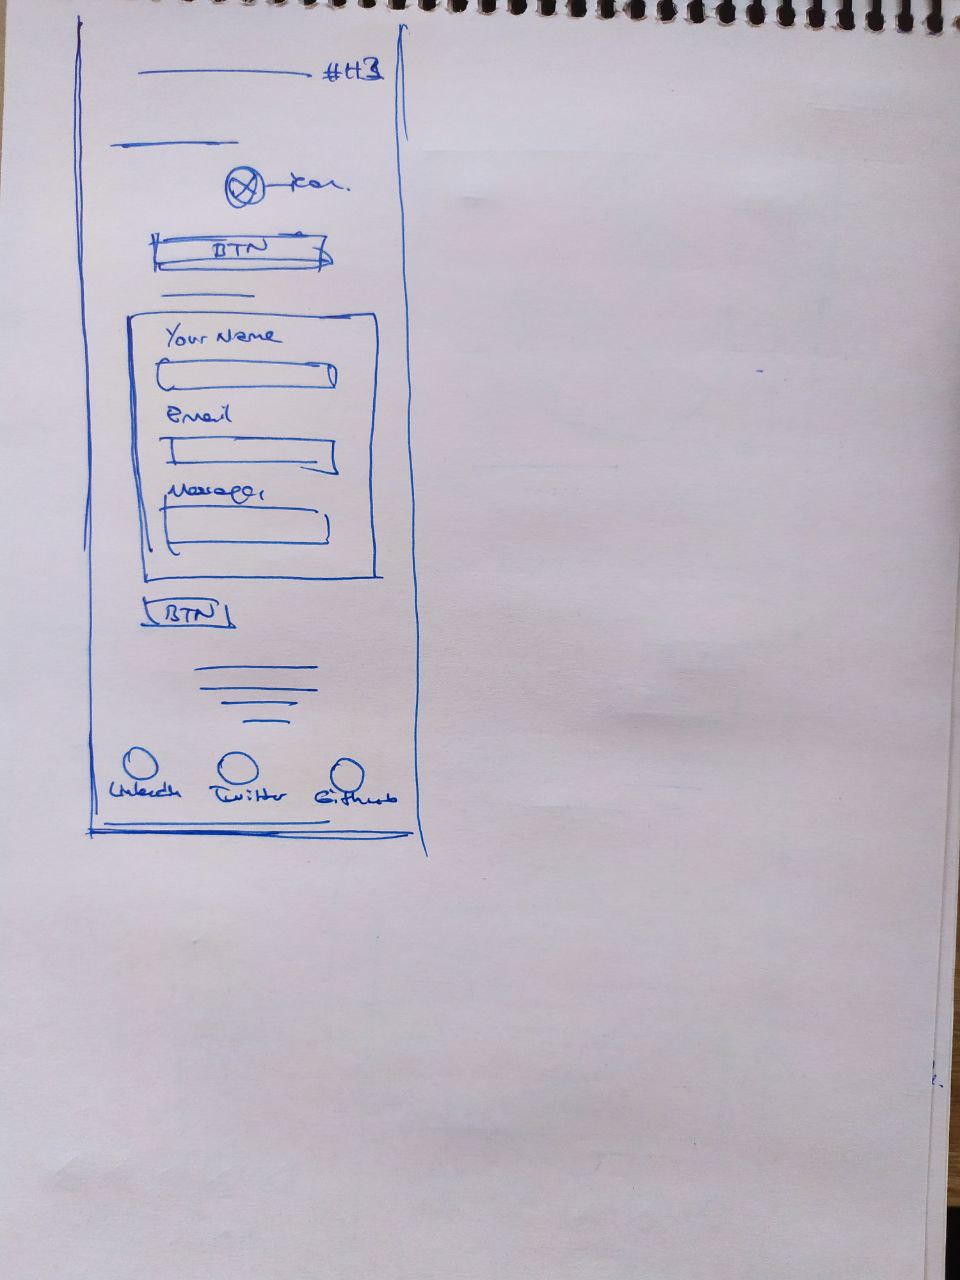 #H3
icon.
BTN
Your Name
Email
Message
BTN
LinkedIn Twitter Github